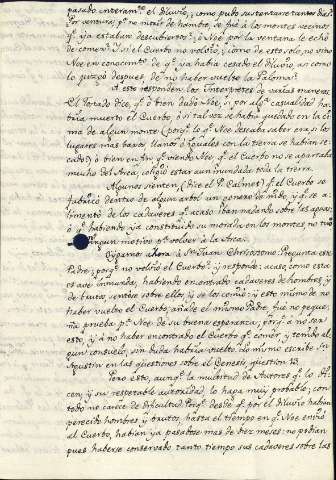 pasado enteram.te el diluvio, como pudo sustentarse tantos dias?
Por ventura, p.a no morir de hambre, se fué á los montes vecinos,
q.e ya estaban descubiertos? ó Noé por la ventana le echó
de comer? Y si el Cuerbo no volvió, y como de esto solo, no vino
Noe en conocim.to de q.e ya habia cesado el diluvio, asi como
lo juzgó despues de no haber vuelto la Paloma?
A esto responden los Interpretes de varias maneras.
El Tostado dice, q.e ó bien dudó Noé, si por alg.a casualidad ha-
bria muerto el Cuerbo, ó si tal vez se habia quedado en la ci-
ma de algun monte (porq.e lo q.e Noe deseaba saber era si los
lugares mas bajos llanos é iguales con la tierra se habian se-
cado) ó bien en fin q.e viendo Noe q.e el Cuerbo no se apartaba
mucho del Arca, coligió estar aun inundada toda la tierra.
Algunos sienten (dice el P. Calmet) q.e el Cuerbo se
fabricó dentro de algun arbol un genero de nido, y q.e se a-
limentó de los cadaveres q.e acaso iban nadando sobre las aguas;
ó habiendo ya constituido su morada en los montes, no tubo
ningun motivo p.a volver á la Arca.
Oygamos ahora á S.n Juan Chrisostomo. Pregunta este
Padre, porq.e no volvió el Cuerbo? y responde: acaso como esta
es ave inmunda, habiendo encontrado cadaveres de hombres, y
de brutos, sentose sobre ellos, y se los comió: y esto mismo de no
haber vuelto el Cuerbo, añade el mismo Padre, fué no peque-
ña prueba p.a Noe de su buena esperanza; porq.e á no ser
esto, y á no haber encontrado el Cuerbo q.e comer, y tomado al-
gun consuelo, sin duda habria vuelto. Lo mismo escribe San
Agustin en las qüestiones sobre el Genesis, qüestion 13.
Pero esto, aunq.e la multitud de Autores q.e lo di-
cen, y su respetable autoridad, lo haga muy probable; con
todo no carece de dificultad. Porq.e desde q.e por el diluvio habian
perecido hombres y brutos, hasta el tiempo en q.e Noe envió
al Cuerbo, habian ya pasadose mas de diez meses: no podian
pues haberse conservado tanto tiempo sus cadaveres sobre las